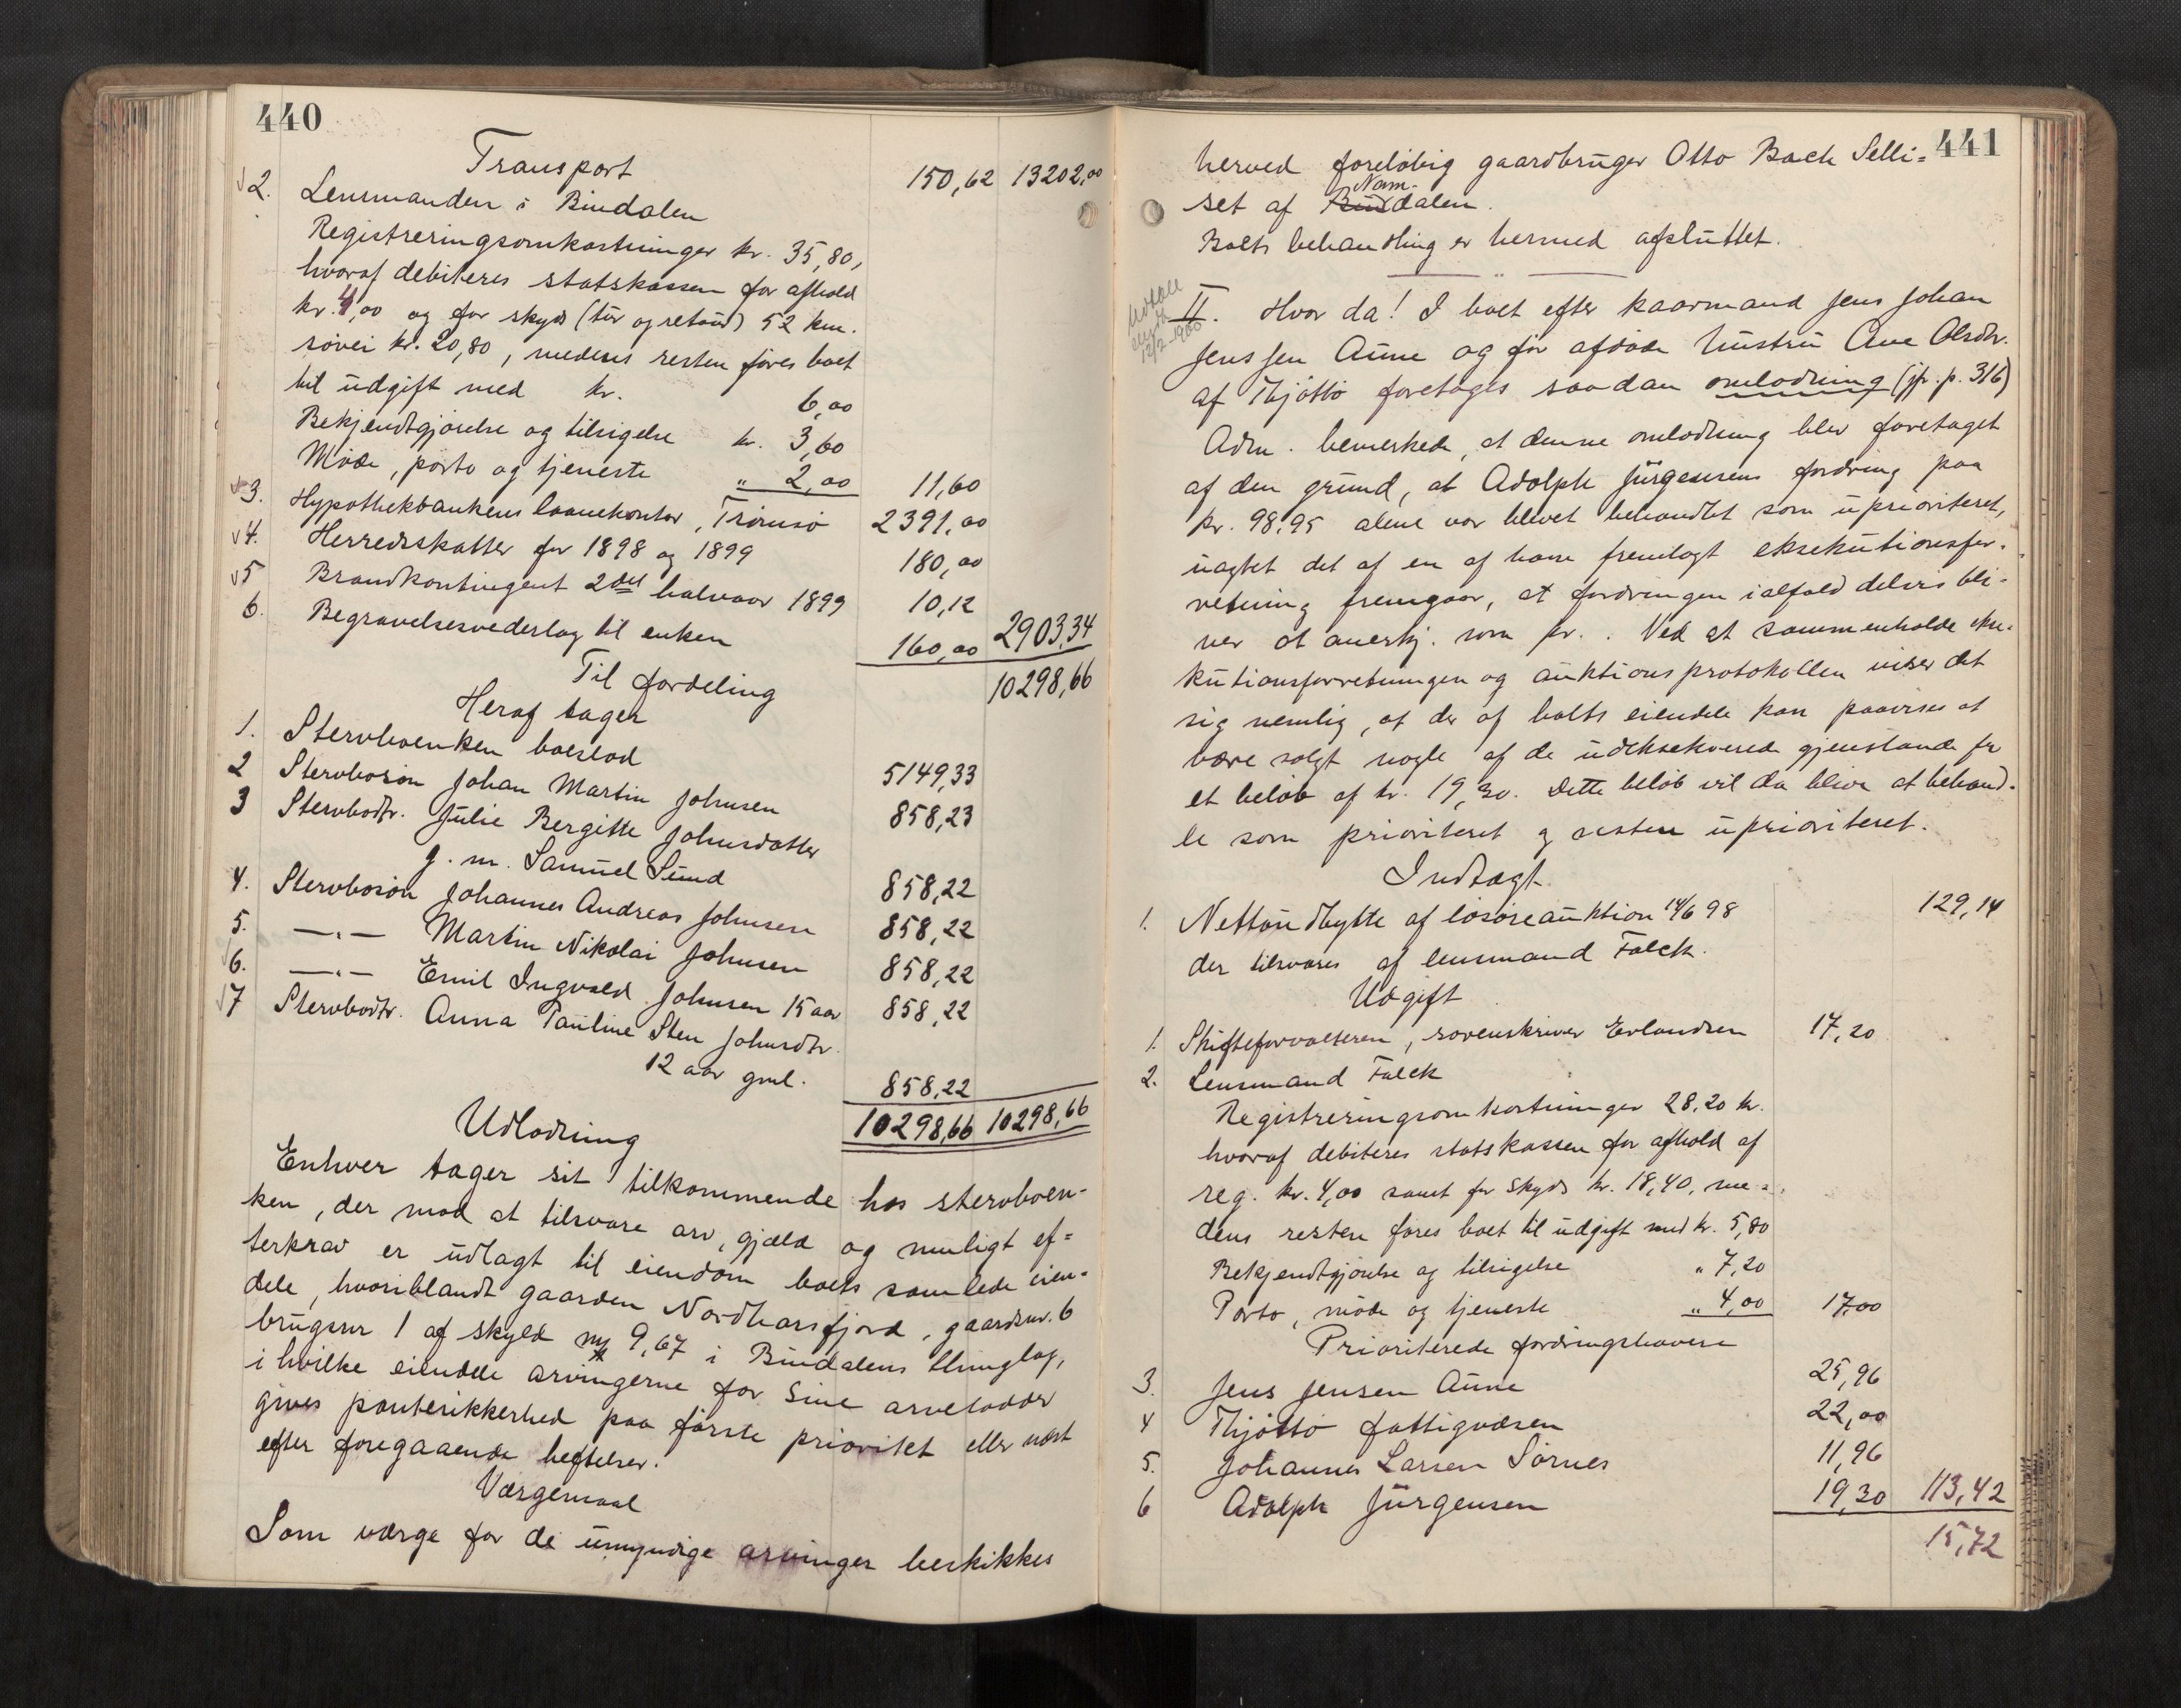 440
Transport 150,62 13202,00
2. Lensmanden i Bindalen
Registreringsomkostninger kr. 35,80,
hvoraf debiteres statskassen for afhold
kr. 4,00 og for skyds (tur og retour) 52 km.
søvei kr. 20,80, medens resten føres boet
til udgift med kr. 6,00
Bekjendtgjørelse og tilsigelse kr. 3,60
Møde, porto og tjeneste " 2,00 11,60
3. Hypothekbankens laanekontor, Tromsø 2391,00
4. Herredsskatter for 1898 og 1899 180,00
5 Brandkontingent 2det halvaar 1899 10,12
6. Begravelsesvederlag til enken 160,00 2903,34
Til fordeling 10298,66
Heraf tager
1. Stervboenken boeslod 5149,33
2 Stervbosøn Johan Martin Johnsen 858,23
3 Stervbodtr. Julie Bergitte Johnsdatter
g. m. Samuel Sund 858,22
4. Stervbosøn Johannes Andreas Johnsen 858,22
5. —"— Martin Nikolai Johnsen 858,22
6. —"— Emil Ingvald Johnsen 15 aar 858,22
7 Stervbodtr. Anna Pauline Sten Johnsdtr.
12 aar gml. 858,22
10298,66 10298,66
Udlodning
Enhver tager sit tilkommende hos stervboen-
ken, der mod at tilsvare arv, gjæld og muligt ef=
terkrav er udlagt til eiendom boets samlede eien-
dele, hvoriblandt gaarden Nordhorsfjord, gaardsnr. 6
brugsnr 1 af skyld mk 9,67 i Bindalens thinglag,
i hvilke eiendele arvingerne for sine arvelodder
gives pantesikkerhed paa første prioritet eller næst
efter foregaaende heftelser.
Værgemaal
Som værge for de umyndige arvinger beskikkes
441
herved foreløbig gaardbruger Otto Bach Selli=
set af Bindalen Nam-
Boets behandling er hermed afsluttet.
12/2-1900
II. Hvor da! I boet efter kaarmand Jens Johan
Jenssen Aune og før afdøde hustru Ane Olsdtr.
af Thjøttø foretages saadan omlodning (jfr. p. 316)
Adm. bemerkede, at denne omlodning blev foretaget
af den grund, at Adolph Jürgensens fordring paa
kr. 98,95 alene var blevet behandlet som uprioriteret,
uagtet det af en af ham fremlagt eksekutionsfor-
retning fremgaar, at fordringen ialfald delvis bli-
ver at anerkj. som pr. . Ved at sammenholde ekse-
kutionsforretningen og auktionsprotokollen viser det
sig nemlig, at der af boets eiendele kan paavises at
være solgt nogle af de udeksekverede gjenstande for
et beløb af kr. 19,30. Dette beløb vil da blive at behand-
le som prioriteret og resten uprioriteret.
Indtægt
1. Nettoudbytte af løsøreauktion 14/6 98 129,14
der tilsvares af lensmand Falck.
Udgift
1. Skifteforvalteren, sorenskriver Erlandsen 17,20
2. Lensmand Falck
Registreringsomkostninger 28,20 kr.
hvoraf debiteres statskassen for afhold af
reg. kr. 4,00 samt for skyds kr. 18,40, me=
dens resten føres boet til udgift med kr. 5,80
Bekjendtgjørelse og tilsigelse " 7,20
Porto, møde og tjeneste " 4,00 17,00
Prioriterede fordringshavere
3. Jens Jensen Aune 25,96
4 Thjøttø fattigvæsen 22,00
5. Johannes Larsen Sørnes 11,96
6 Adolph Jürgensen 19,30 113,42
15,72